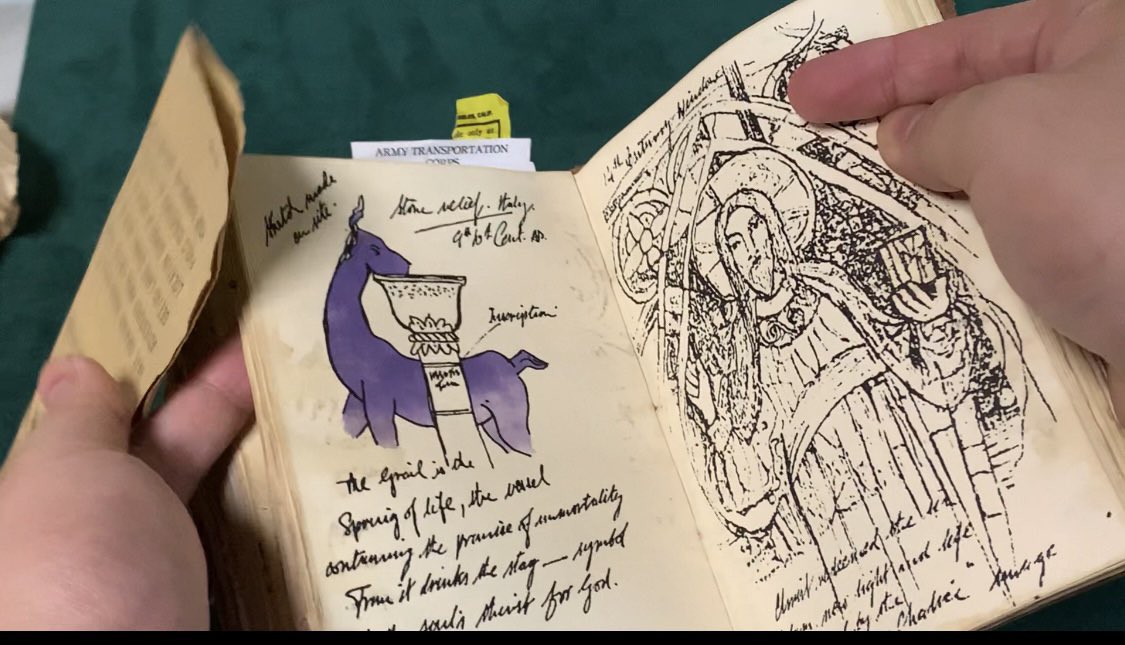 ARMY TRANSPORTATION
CORPS
only as
Sketch made
on site.
Stone relief. Italy.
9th Cent. AD.
Inscription
The Grail is the
Spring of life, the vessel
containing the promise of immortality
From it drinks the stag — symbol
soul's thirst for God.
14th Century Window
Christ redeemed the
new light and life
by the
Chalice